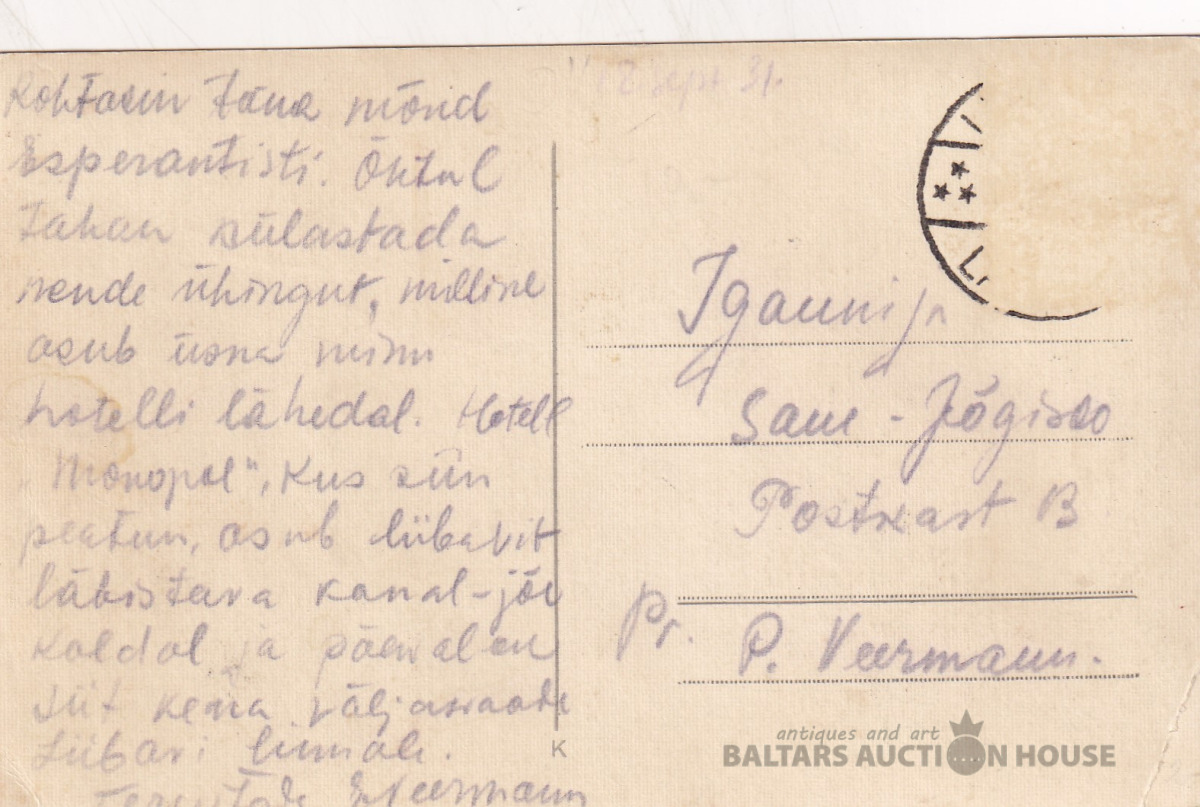 Kohtasin täna mõnd
Esperantisti. Õhtul
tahan külastada
nende ühingut, milline
asub üsna minu
hotelli lähedal. Hotell
"Monopol", kus siin
peatun, asub liibavit
läbistava kanal-jõe
kaldal ja päewal on
siit kena väljawaade
Liibavi linnale.
Tervitab E. Veermann
sept. 31.
Igaunija
Saue - Jõgisoo
Postkast B
Pr. P. Veermann.
K
antiques and art
BALTARS AUCTION HOUSE